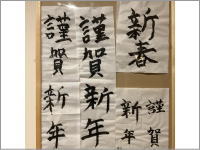 謹賀新年
謹賀新年
新春
謹賀
新年